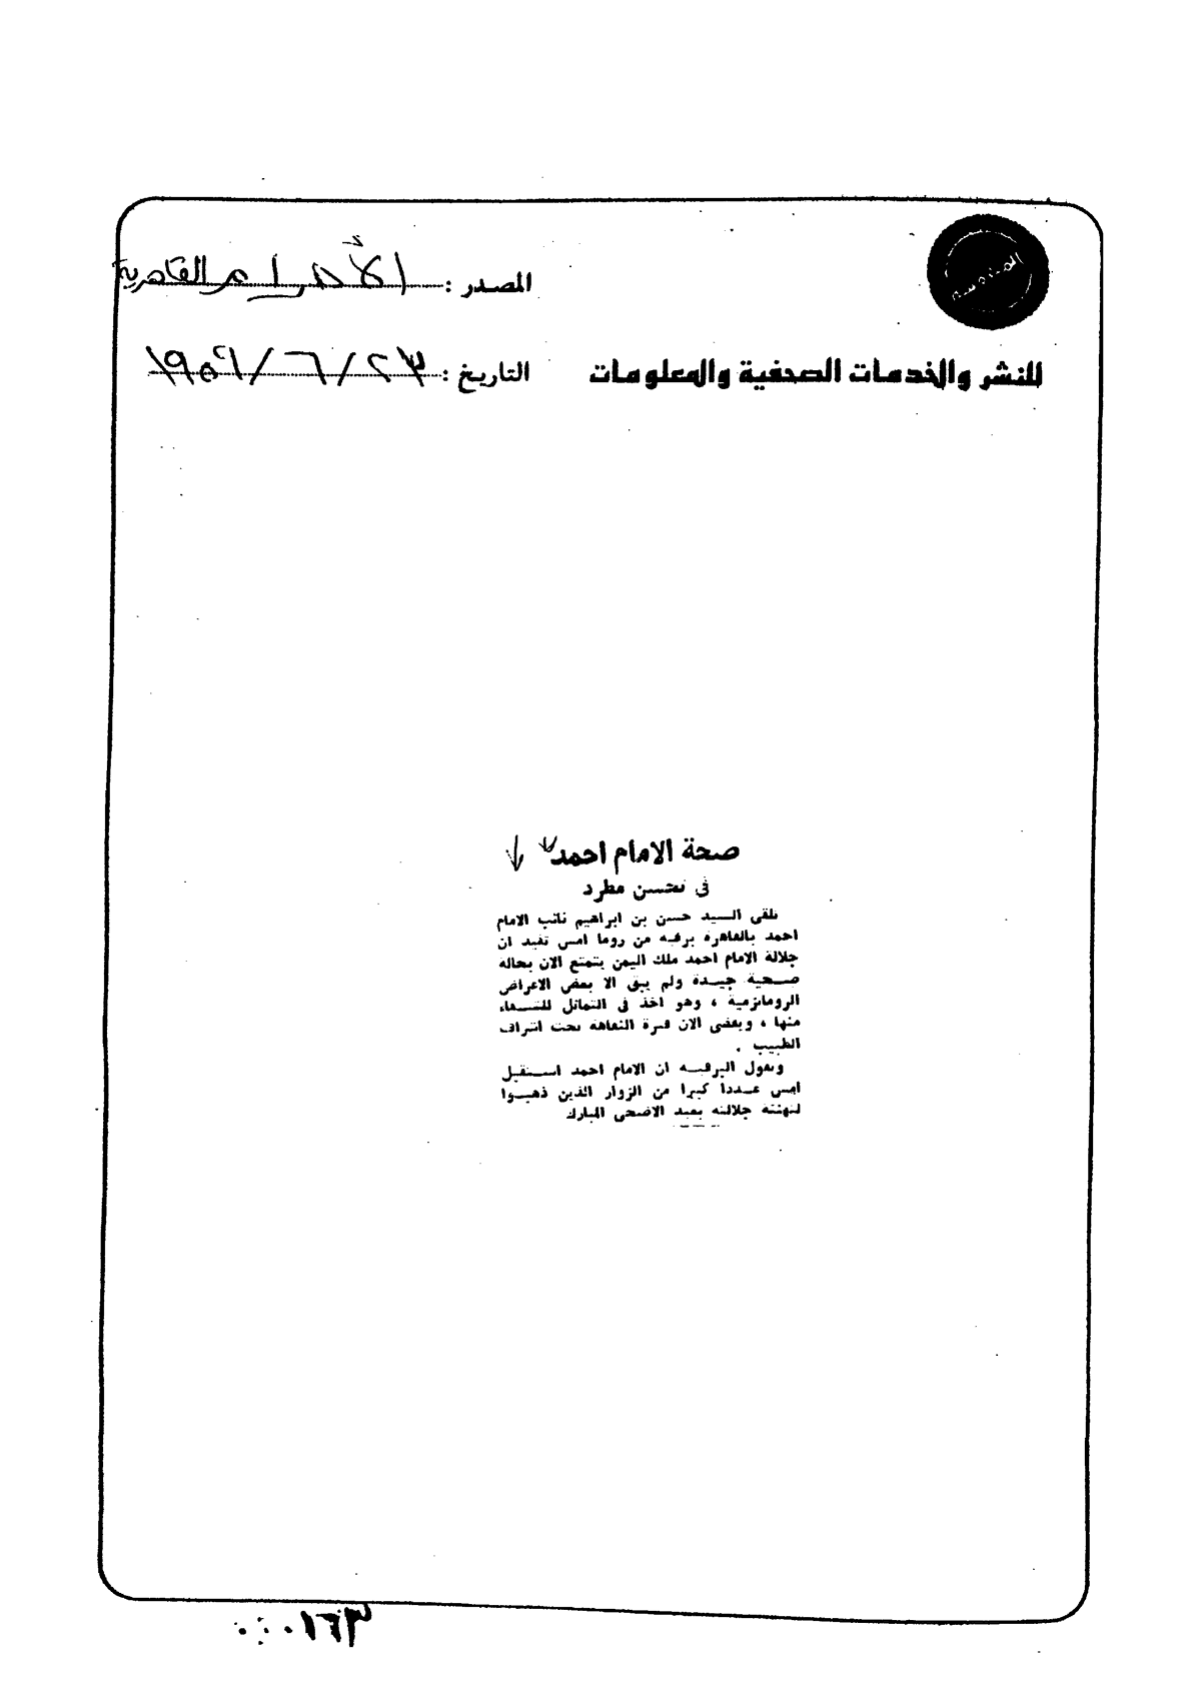 المصدر : الأهرام القاهرية
للنشر والخدمات الصحفية والمعلومات
التاريخ : ٢٣/٦/١٩٥٩
صحة الامام احمد
فى تحسن مطرد
تلقى السيد حسن بن ابراهيم نائب الامام
احمد بالقاهرة برقية من روما امس تفيد ان
جلالة الامام احمد ملك اليمن يتمتع الان بحالة
صحية جيدة ولم يبق الا بعض الاعراض
الروماتزمية ، وهو اخذ فى التماثل للشفاء
منها ، ويقضى الان فترة النقاهة تحت اشراف
الطبيب .
وتقول البرقية ان الامام احمد استقبل
امس عددا كبيرا من الزوار الذين ذهبوا
لتهنئة جلالته بعيد الاضحى المبارك
٠٠٠١٦٣